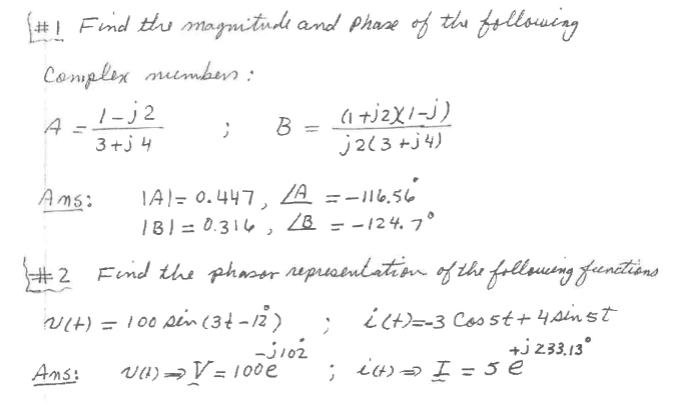 #1 Find the magnitude and phase of the following
Complex numbers:
A = 1-j2 / 3+j4 ; B = (1+j2)(1-j) / j2(3+j4)
Ans: |A| = 0.447, ∠A = -116.56°
|B| = 0.316, ∠B = -124.7°
#2 Find the phasor representation of the following functions
v(t) = 100 sin(3t-12°) ; i(t)=-3 Cos5t + 4 sin5t
Ans: v(t) ⇒ V = 100e^-j102° ; i(t) ⇒ I = 5e^+j233.13°